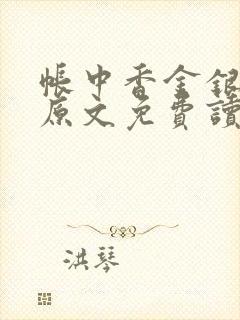 帳中香金銀
原文免費讀
洪琴